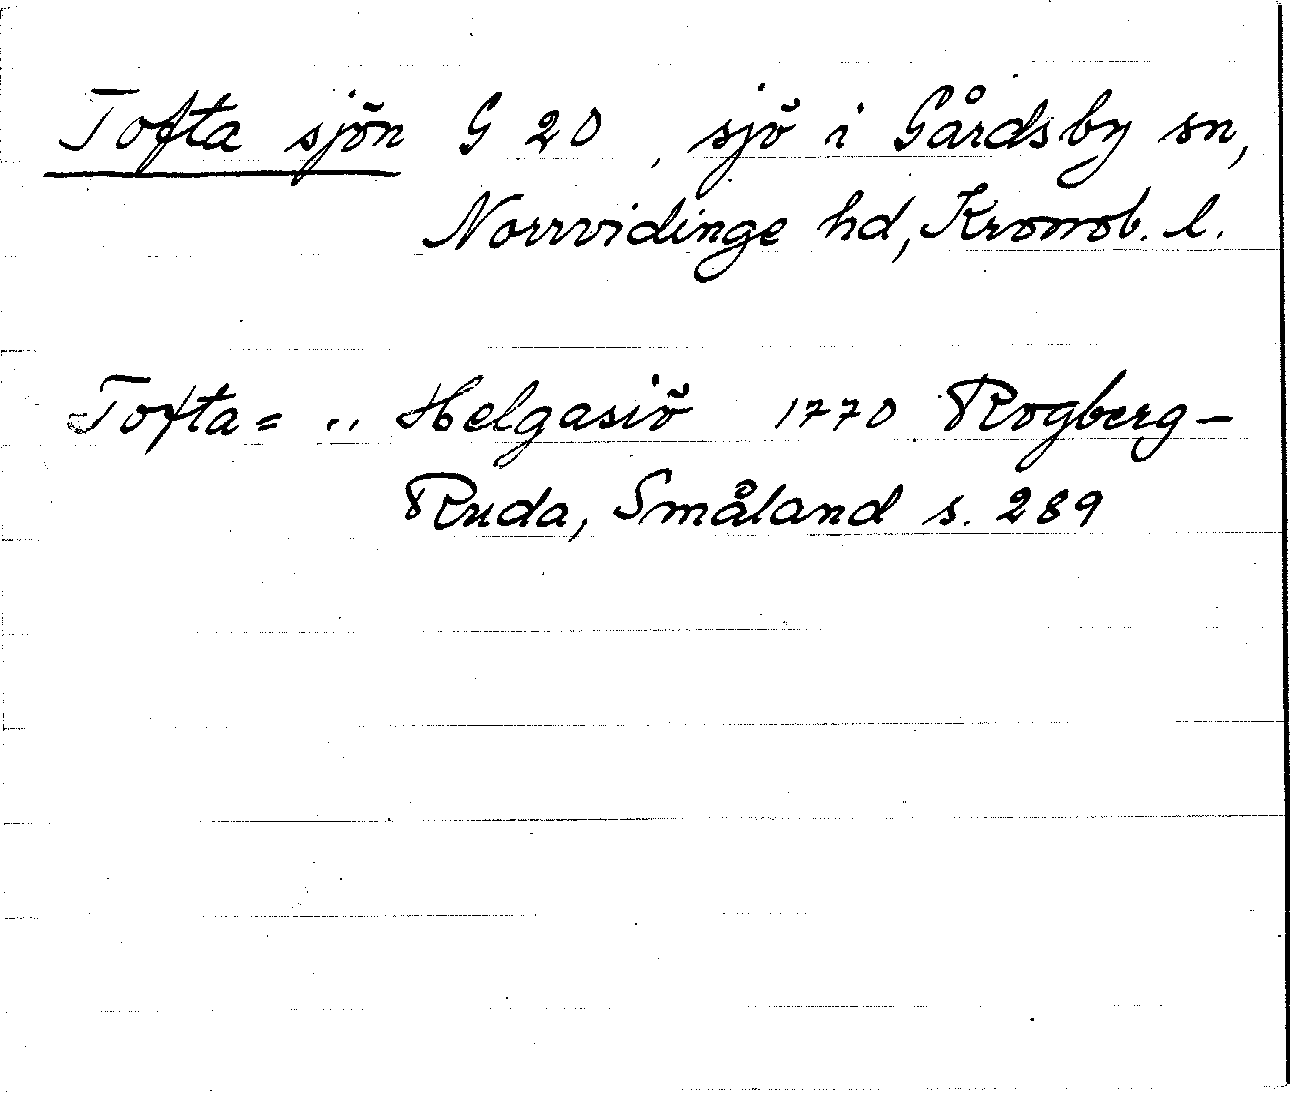 Tofta sjön G 20, sjö i Gårdsby sn,
Norrvidinge hd, Kronob. l.
Tofta= .. Helgasiö 1770 Rogberg-
Ruda, Småland s. 289